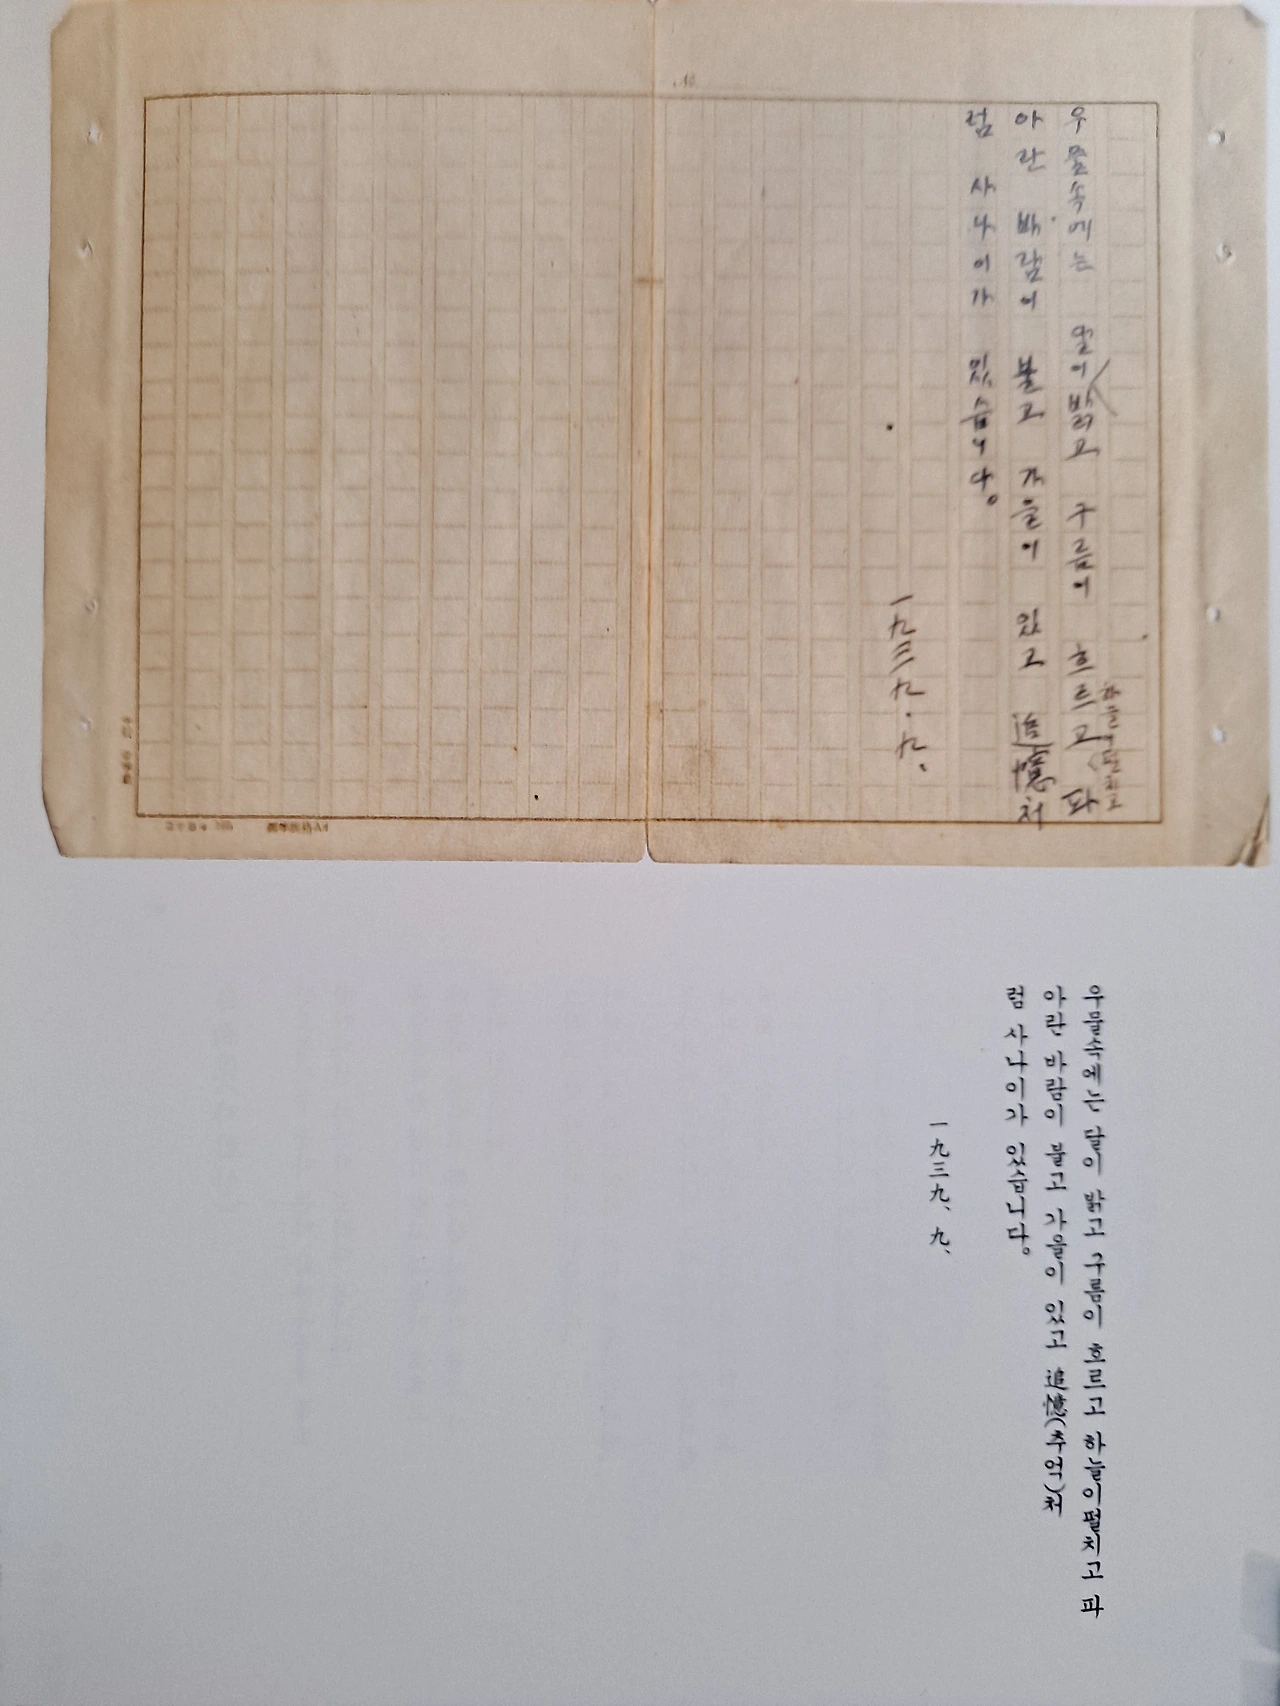 우물속에는 달이 밝고 구름이 흐르고 하늘이 펼치고 파
아란 바람이 불고 가을이 있고 追憶처
럼 사나이가 있습니다。
一九三九·九、
우물속에는 달이 밝고 구름이 흐르고 하늘이펼치고 파
아란 바람이 불고 가을이 있고 追憶(추억)처
럼 사나이가 있습니다。
一九三九、九、